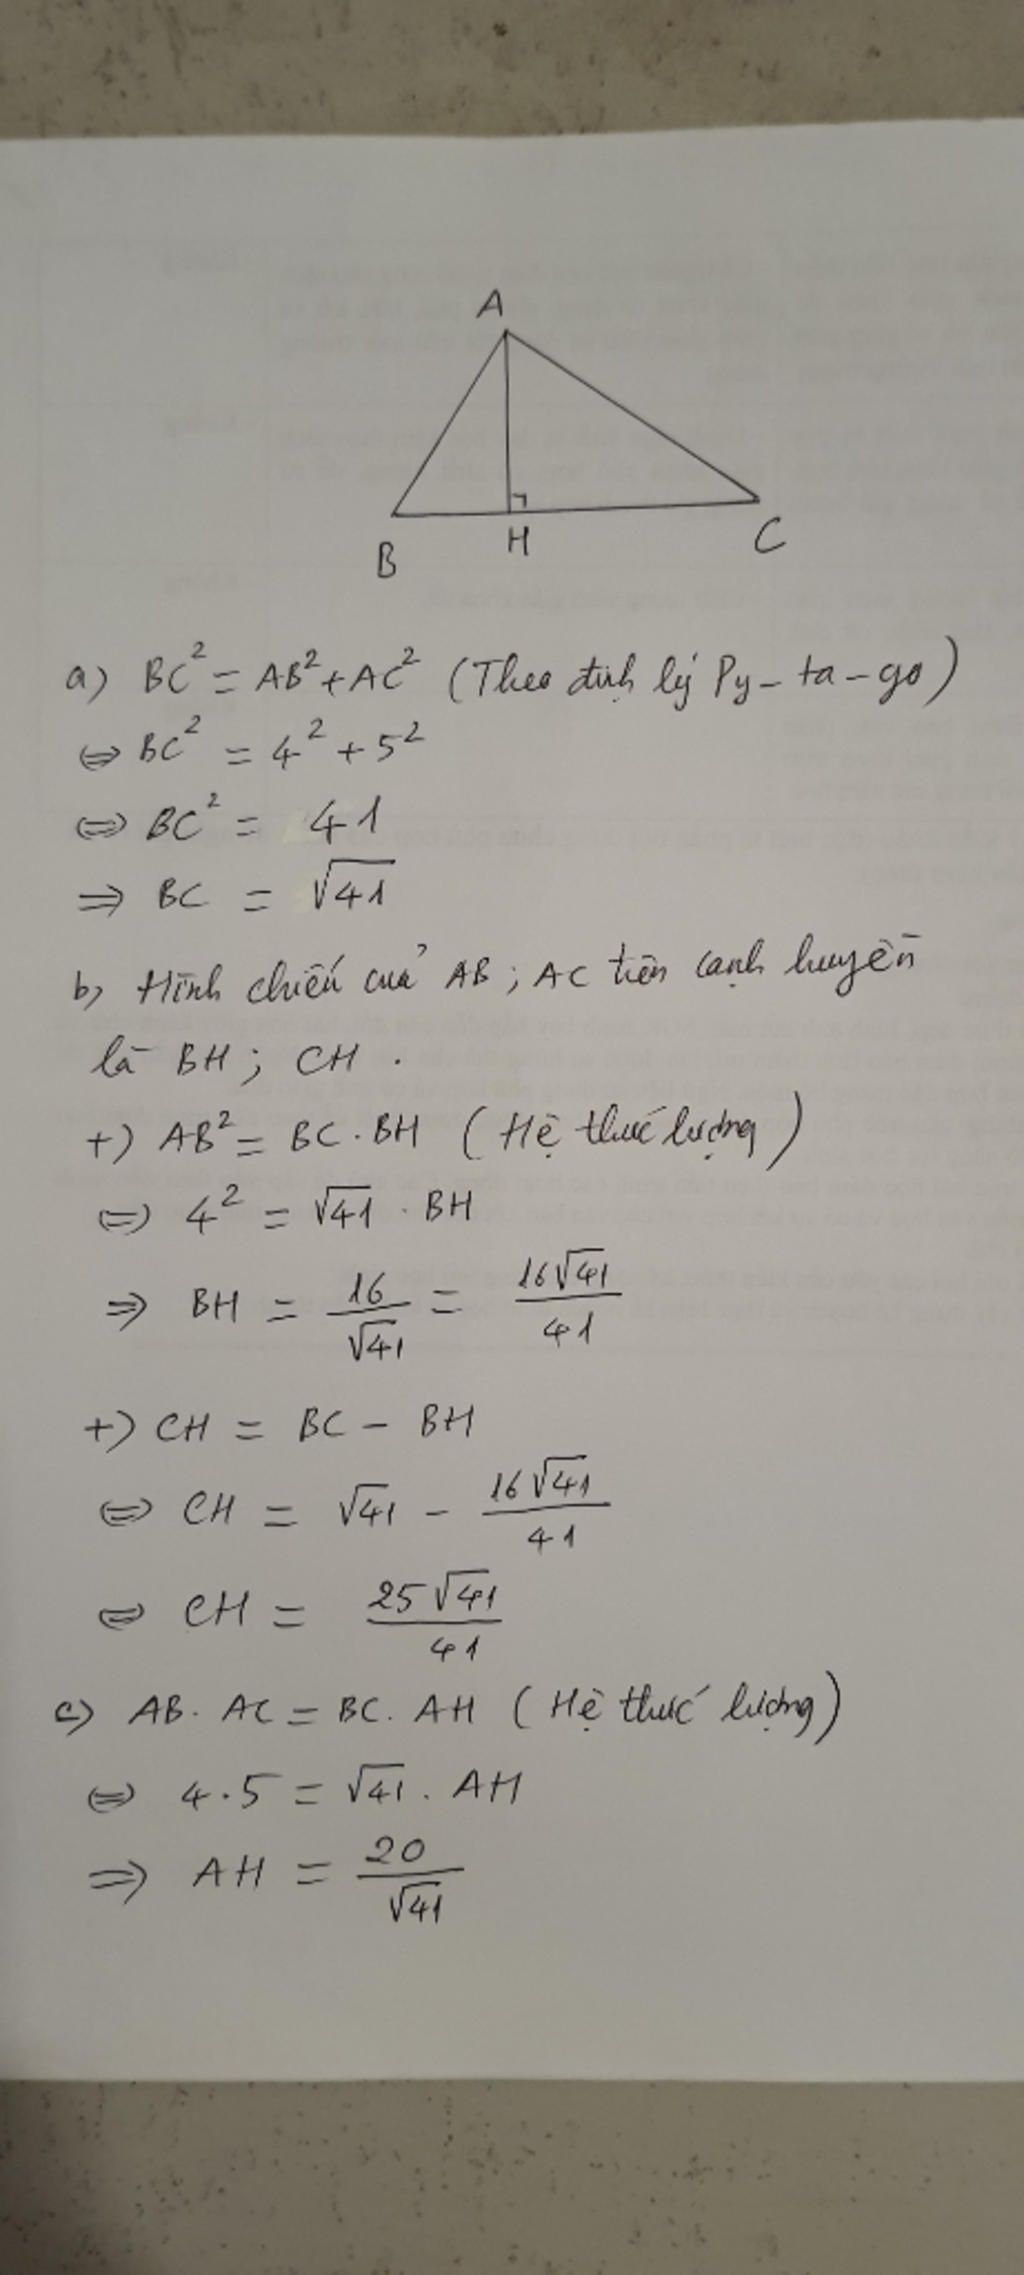 A
B
H
C
a) BC² = AB² + AC² (Theo định lý Py-ta-go)
⇔ BC² = 4² + 5²
⇔ BC² = 41
⇒ BC = √41
b) Hình chiếu của AB; AC trên cạnh huyền
là BH; CH.
+) AB² = BC . BH (Hệ thức lượng)
⇔ 4² = √41 . BH
⇒ BH = 16/√41 = 16√41/41
+) CH = BC - BH
⇔ CH = √41 - 16√41/41
⇔ CH = 25√41/41
c) AB . AC = BC . AH (Hệ thức lượng)
⇔ 4.5 = √41 . AH
⇒ AH = 20/√41